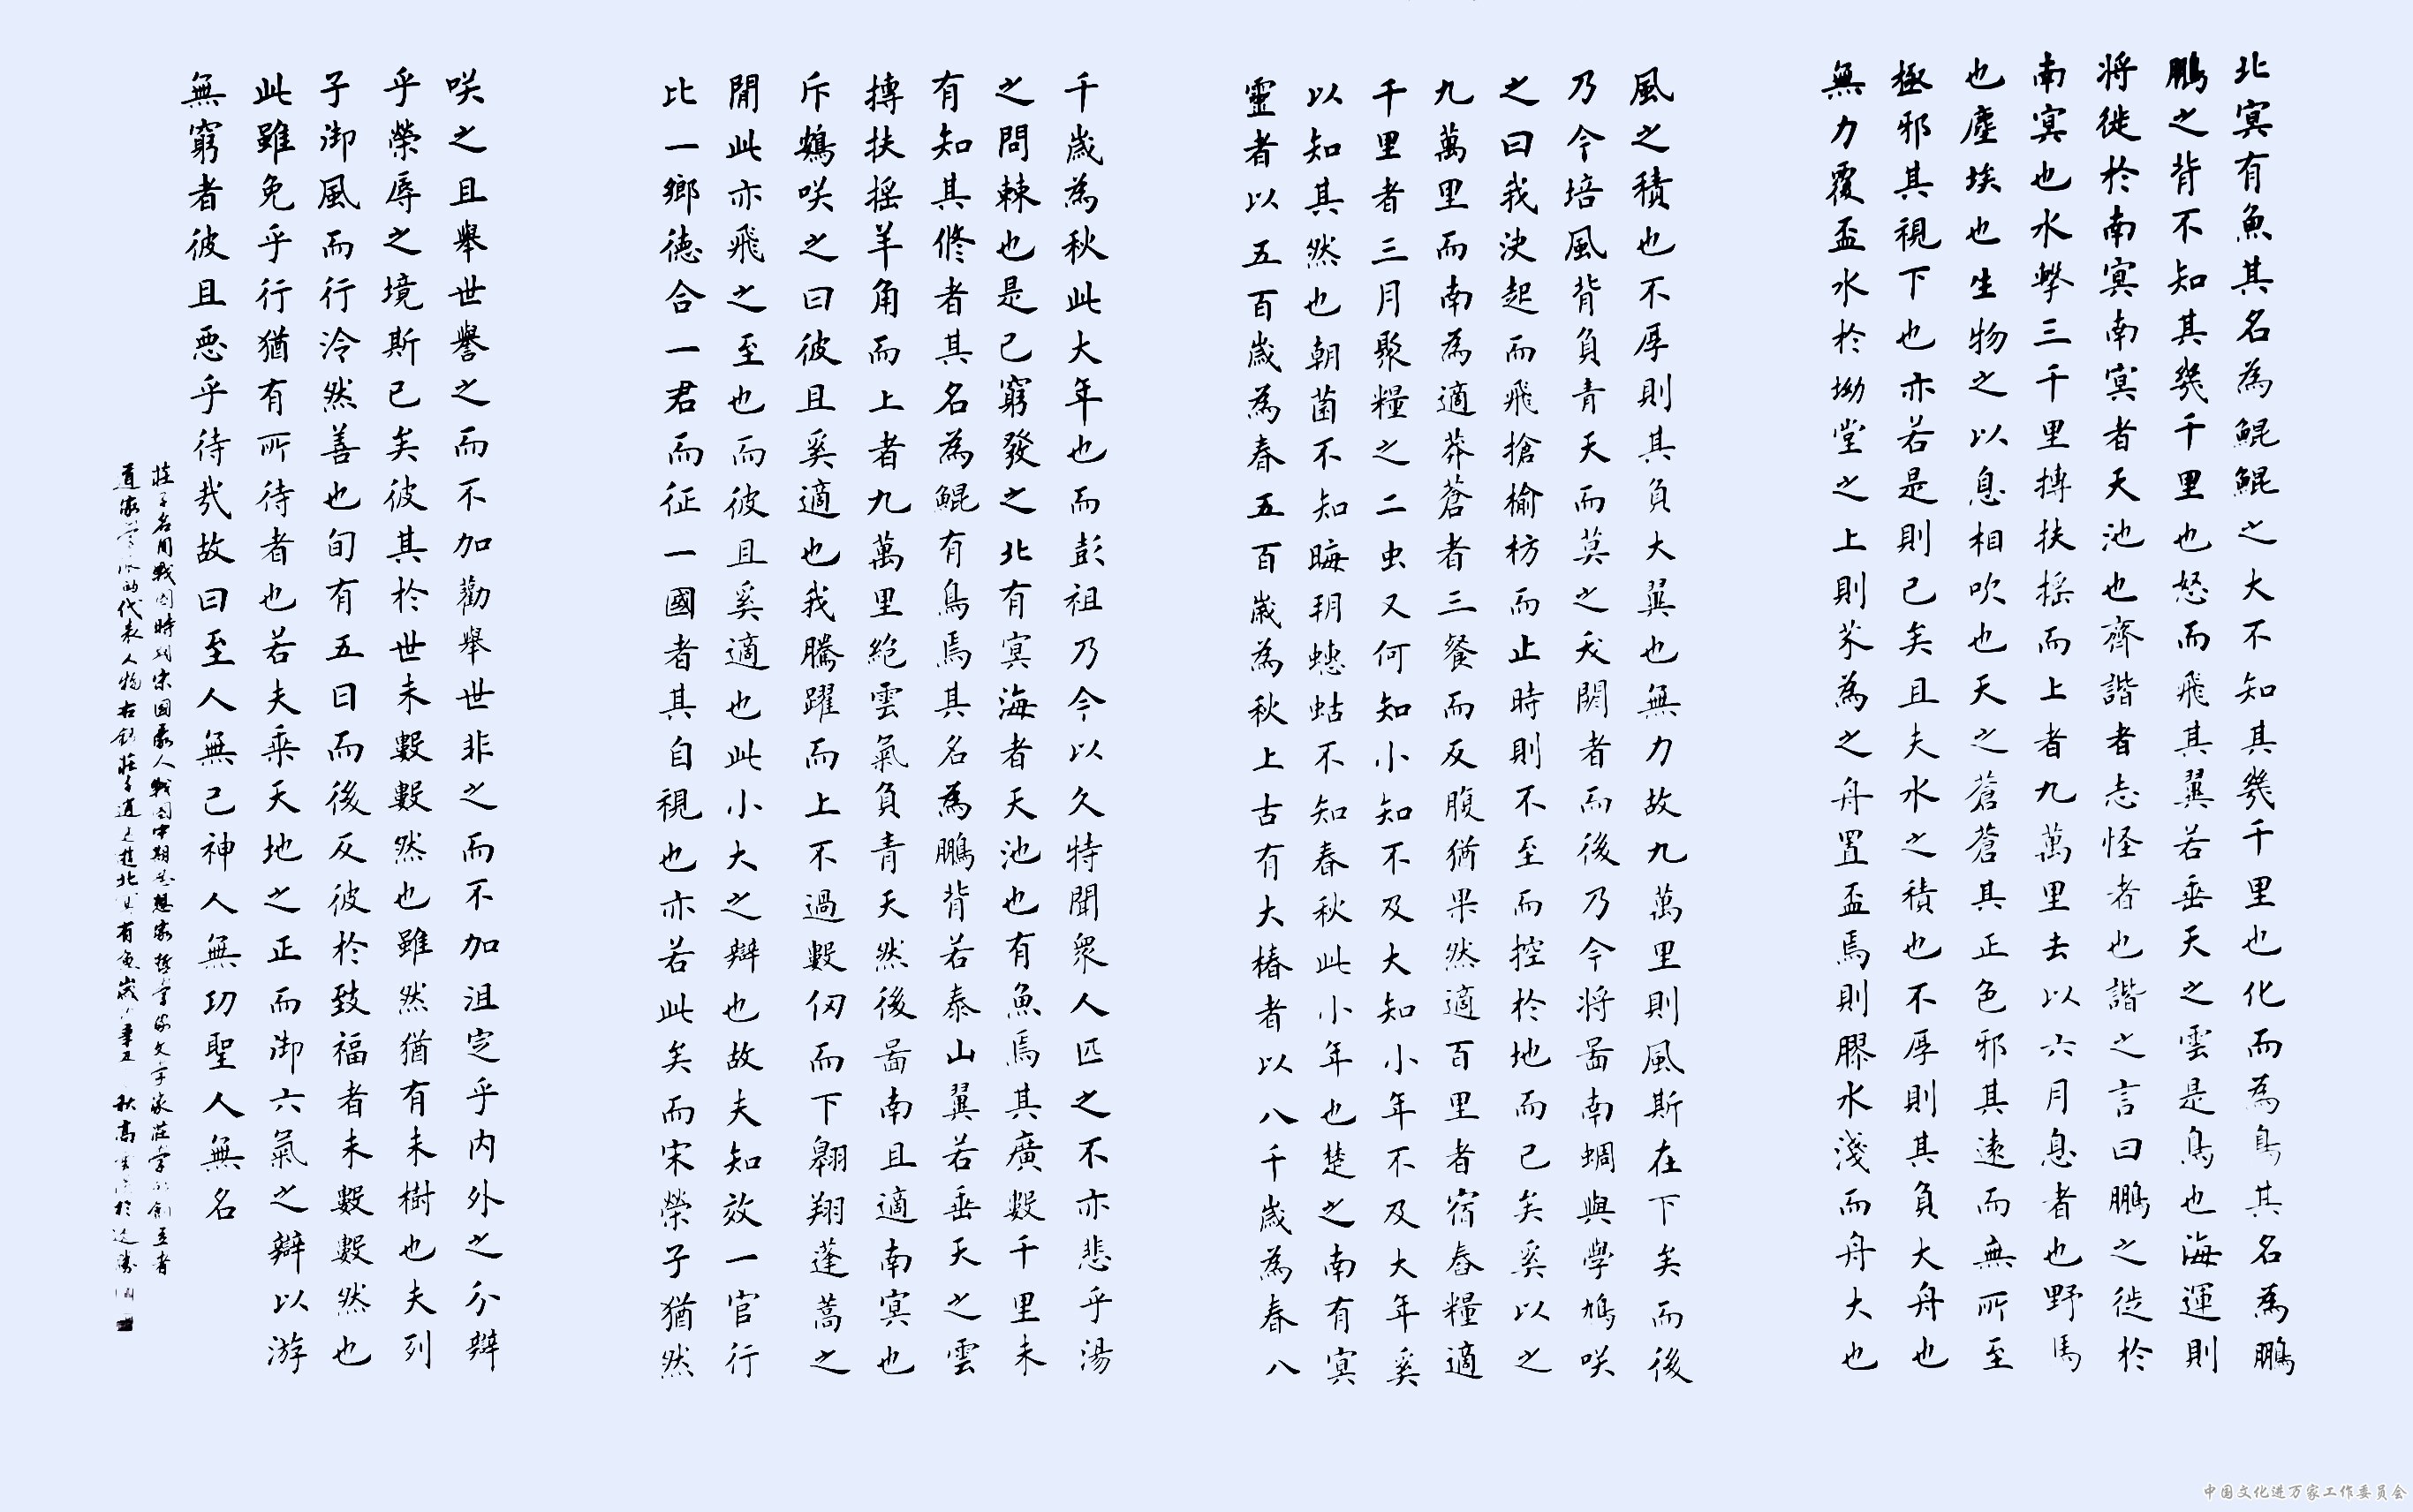 北冥有魚其名為鯤鯤之大不知其幾千里也化而為鳥其名為鵬
鵬之背不知其幾千里也怒而飛其翼若垂天之雲是鳥也海運則
将徙於南冥南冥者天池也齊諧者志怪者也諧之言曰鵬之徙於
南冥也水擊三千里摶扶摇而上者九萬里去以六月息者也野馬
也塵埃也生物之以息相吹也天之蒼蒼其正色邪其遠而無所至
極邪其視下也亦若是則已矣且夫水之積也不厚則其負大舟也
無力覆盃水於坳堂之上則芥為之舟置盃焉則膠水淺而舟大也
風之積也不厚則其負大翼也無力故九萬里則風斯在下矣而後
乃今培風背負青天而莫之夭閼者而後乃今将啚南蜩與學鳩咲
之曰我決起而飛搶榆枋而止時則不至而控於地而已矣奚以之
九萬里而南為適莽蒼者三餐而反腹猶果然適百里者宿舂糧適
千里者三月聚糧之二虫又何知小知不及大知小年不及大年奚
以知其然也朝菌不知晦朔蟪蛄不知春秋此小年也楚之南有冥
靈者以五百歲為春五百歲為秋上古有大椿者以八千歲為春八
千歲為秋此大年也而彭祖乃今以久特聞衆人匹之不亦悲乎湯
之問棘也是已窮發之北有冥海者天池也有魚焉其廣數千里未
有知其修者其名為鯤有鳥焉其名為鵬背若泰山翼若垂天之雲
摶扶摇羊角而上者九萬里絕雲氣負青天然後啚南且適南冥也
斥鴳咲之曰彼且奚適也我騰躍而上不過數仞而下翱翔蓬蒿之
閒此亦飛之至也而彼且奚適也此小大之辯也故夫知效一官行
比一鄉德合一君而征一國者其自視也亦若此矣而宋榮子猶然
咲之且舉世譽之而不加勸舉世非之而不加沮定乎内外之分辯
乎榮辱之境斯已矣彼其於世未數數然也雖然猶有未樹也夫列
子御風而行泠然善也旬有五日而後反彼於致福者未數數然也
此雖免乎行猶有所待者也若夫乘天地之正而御六氣之辯以游
無窮者彼且惡乎待哉故曰至人無己神人無功聖人無名
莊子名周戰國時列宋國蒙人戰國中期思想家哲學家文学家莊學的創立者
道家學派的代表人物右錄莊子逍遥遊北冥有魚歲秋高於
中国文化进万家工作委员会